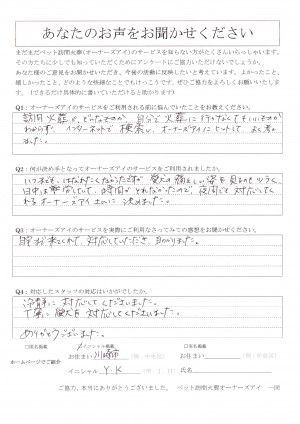 あなたのお声をお聞かせください
まだまだペット訪問火葬(オーナーズアイ)のサービスを知らない方がたくさんいらっしゃいます。
その方たちに少しでも知っていただくためにアンケートにご協力いただけないでしょうか。
あなた様のご意見をお聞かせいただき、今後の活動に反映したいと考えています。よかったこと、
嬉しかったこと、どのような些細なことでもけっこうです。ぜひご協力をよろしくお願いいたします。
(できるだけ具体的に書いていただけると助かります)
Q1：オーナーズアイのサービスをご利用される前に悩んでいたことをお教えください。
訪問火葬が、どんなものか、自分で火葬に行かなくてもいいものか
わからず、インターネットで検索し、オーナーズアイにヒットして、よく考え
ました。
Q2：何が決め手となってオーナーズアイのサービスをご利用されましたか。
愛犬の
姿を見るのもつらく、
日中は
時間がとれなかったので、夜間でも対応してくれ
るオーナーズアイさんに決めました。
Q3：オーナーズアイのサービスを実際にご利用なさってみての感想をお聞かせください。
来てくれて、対応していただき、助かりました。
Q4：対応したスタッフの対応はいかがでしたか。
冷静に対応してくださいました。
丁寧に愛犬を
くださいました。
ありがとうございました。
□実名掲載
イニシャル掲載
□実名掲載
ホームページでご紹介
お住まい 川崎市
お住まい
イニシャル Y・K
ご協力、本当にありがとうございました。 ペット訪問火葬オーナーズアイ 一同